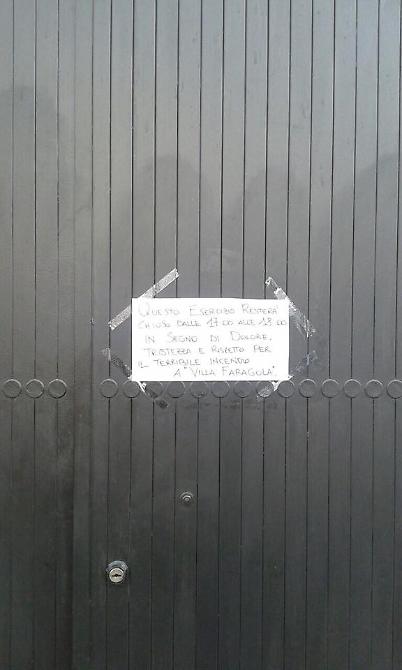 QUESTO ESERCIZIO RESTERA'
CHIUSO DALLE 17.00 ALLE 18.00
IN SEGNO DI DOLORE,
TRISTEZZA E RISPETTO PER
IL TERRIBILE INCENDIO
A "VILLA FARAGOLA".